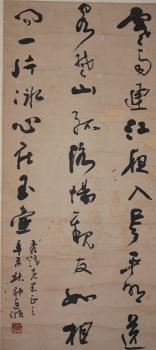 寒雨連江夜入吳平明送
客楚山孤洛陽親友如相
問一片冰心在玉壺
先生正之